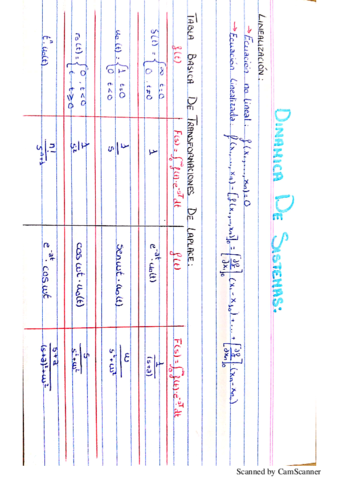 DINAMICA DE SISTEMAS:
LINEALIZACIÓN:
→ Ecuacion no lineal: f(x₁,...,xₙ)=0
→ Ecuación linealizada: f(x₁,...,xₙ) = [f(x₁,...,xₙ)]₀ + [∂f/∂x₁]₀ (x₁-x₁₀) + ... + [∂f/∂xₙ]₀ (xₙ-xₙ₀)
TABLA BASICA DE TRANSFORMACIONES DE LAPLACE:
f(t) F(s)=∫f(t)·e^-st dt f(t) F(s)=∫f(t)·e^-st dt
δ(t) = {∞ t=0 1 e^-at · u₀(t) 1/(s+a)
0 t≠0
u₀(t) = {1 t≥0 1/s sen ωt · u₀(t) ω/(s²+ω²)
0 t<0
r₀(t) = {0, t<0 1/s² cos ωt · u₀(t) s/(s²+ω²)
t, t≥0
tⁿ·u₀(t) n!/s^(n+1) e^-at · cos ωt (s+a)/((s+a)²+ω²)
Scanned by CamScanner